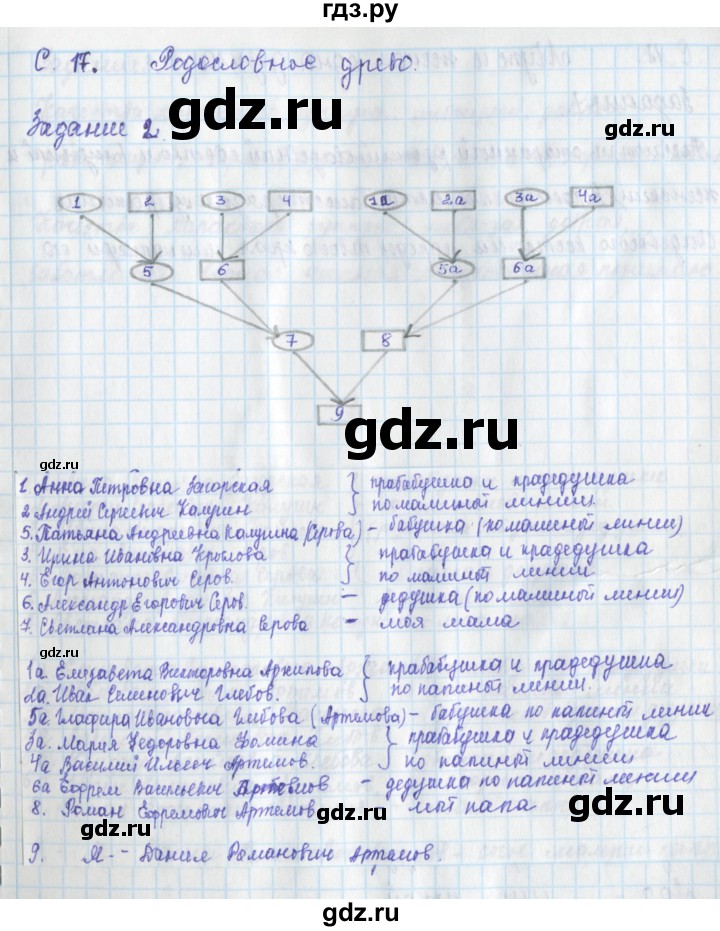 гдз.ру
С. 17. Родословное древо.
gdz.ru
Задание 2.
1 2 3 4 1а 2а 3а 4а
5 6 5а 6а
gdz.ru
7 8
gdz.ru
9
gdz.ru
gdz.ru
1. Анна Петровна Загорская } прабабушка и прадедушка
2 Андрей Сергеевич Калугин по маминой линии
5. Татьяна Андреевна Калугина (Серова) – бабушка (по маминой линии)
3. Ирина Ивановна Круглова } прабабушка и прадедушка
4. Егор Антонович Серов. по маминой линии
gdz.ru
6. Александр Егорович Серов. – дедушка (по маминой линии)
7. Светлана Александровна Серова – моя мама
gdz.ru
1а. Елизавета Викторовна Архипова } прабабушка и прадедушка
2а. Иван Семенович Глебов. по папиной линии.
5а Глафира Ивановна Глебова (Артемова) – бабушка по папиной линии
3а. Мария Федоровна Фомина } прабабушка и прадедушка
4а Василий Ильич Артемов. по папиной линии
6а Ефрем Васильевич Артемов – дедушка по папиной линии
gdz.ru
8. Роман Ефремович Артемов – мой папа
gdz.ru
9. Я. – Данил Романович Артамов.
gdz.ru
gdz.ru